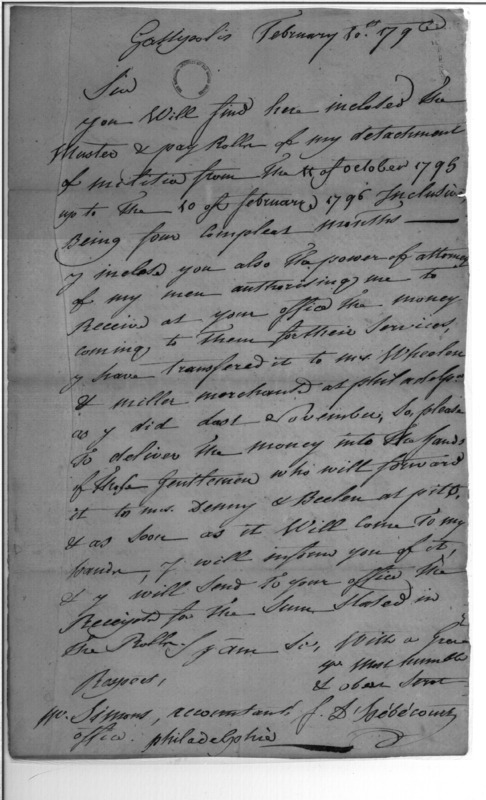 Gallypolis February 10th 1796
Sir
you Will find here inclosed the
Muster & pay Rolls of my detachment
of militia from The 11 of october 1795
up to The 10 of februari 1796 Inclusiv
Being four Compleat months
y inclose you also The power of attorney
of my men authorising me to
Receive at your office the money
coming to them for their Services,
y have transfered it to mrs. Wheelen
& miller merchants at philadelp
as y did last November, So, please
to deliver the money into the hands
of these gentlemen who will forward
it to mrs. Denny & Beelen at pittb.
& as soon as it Will Come To my
hands, y will inform you of it,
& y will send to your office the
Receipts for the Sum Stated in
The Rolls. I am Sir, With a Great
Respect, yr Most humble
& obedt Servt
mr. Simons, accountants J. D'hébécourt
office. philadelphie